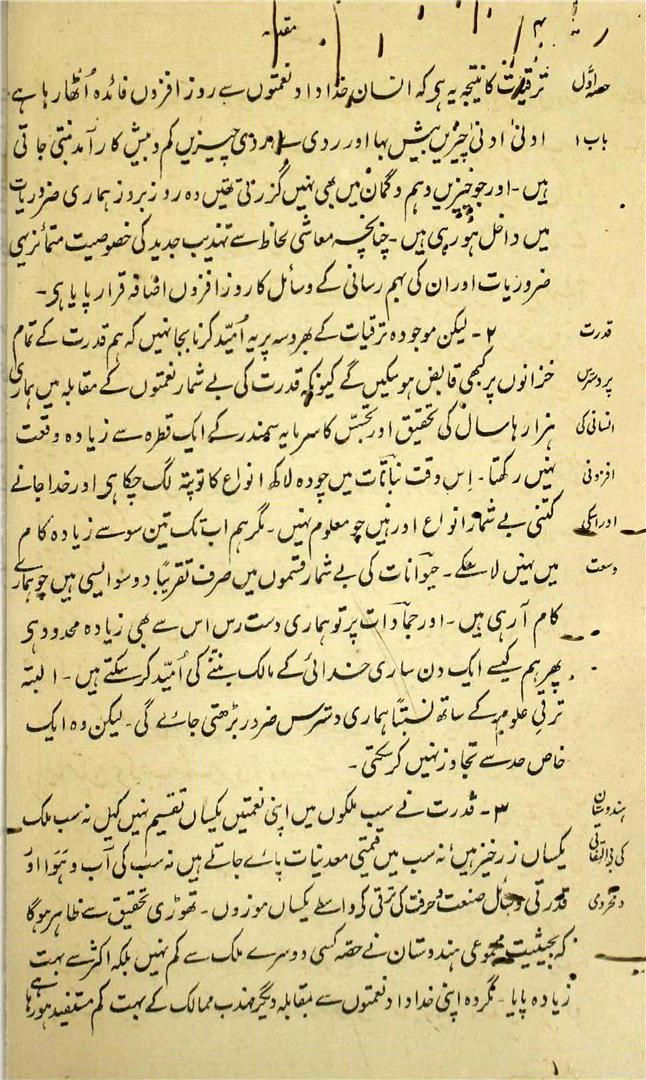 مقدمہ
۴
حصہ اوّل
ترقیات کا نتیجہ یہ ہی کہ انسان خدا داد نعمتوں سے روز افزوں فائدہ اُٹھا رہا ہے
باب ۱
ادنیٰ ادنیٰ چیزیں بیش بہا اور ردی سے ردی چیزیں کم و بیش کارآمد بنتی جاتی
ہیں - اور جو چیزیں وہم و گمان میں بھی نہیں گزرتی تھیں وہ روز بروز ہماری ضروریات
میں داخل ہو رہی ہیں - چنانچہ معاشی لحاظ سے تہذیب جدید کی خصوصیت متمائز یہی
ضروریات اور ان کی بہم رسانی کے وسائل کا روز افزوں اضافہ قرار پایا ہی -
قدرت
۲ - لیکن موجودہ ترقیات کے بھروسہ پر یہ اُمّید کرنا بجا نہیں کہ ہم قدرت کے تمام
پر دسترس
خزانوں پر کبھی قابض ہو سکیں گے کیونکہ قدرت کی بے شمار نعمتوں کے مقابلہ میں ہماری
انسانی کی
ہزارہا سال کی تحقیق اور تجسّس کا سرمایہ سمندر کے ایک قطرہ سے زیادہ وقعت
افزونی
نہیں رکھتا - اِس وقت نباتات میں چودہ لاکھ انواع کا تو پتہ لگ چکا ہی اور خدا جانے
اور اسکی
کتنی بے شمار انواع اور ہیں جو معلوم نہیں - مگر ہم اب تک تین سو سے زیادہ کام
وسعت
میں نہیں لا سکے - حیوانات کی بے شمار قسموں میں صرف تقریباً دو سو ایسی ہیں جو ہمارے
کام آ رہی ہیں - اور جمادات پر تو ہماری دست رس اس سے بھی زیادہ محدود ہی
پھر ہم کیسے ایک دن ساری خدائی کے مالک بننے کی اُمّید کر سکتے ہیں - البتہ
ترقی علوم کے ساتھ نسبتاً ہماری دسترس ضرور بڑھتی جائے گی - لیکن وہ ایک
خاص حد سے تجاوز نہیں کر سکتی -
ہندوستان
۳ - قدرت نے سب ملکوں میں اپنی نعمتیں یکساں تقسیم نہیں کیں نہ سب ملک
کی
یکساں زرخیز ہیں نہ سب میں قیمتی معدنیات پائے جاتے ہیں نہ سب کی آب و ہوا اور
و محرومی
قدرتی وسائل صنعت و حرفت کی ترقی کی واسطے یکساں موزوں - تھوڑی تحقیق سے ظاہر ہوگا
کہ بحیثیت مجموعی ہندوستان نے حصہ کسی دوسرے ملک سے کم نہیں بلکہ اکثر سے بہت
زیادہ پایا - مگر وہ اپنی خدا داد نعمتوں سے بمقابلہ دیگر مہذب ممالک کے بہت کم مستفید ہو رہا ہے